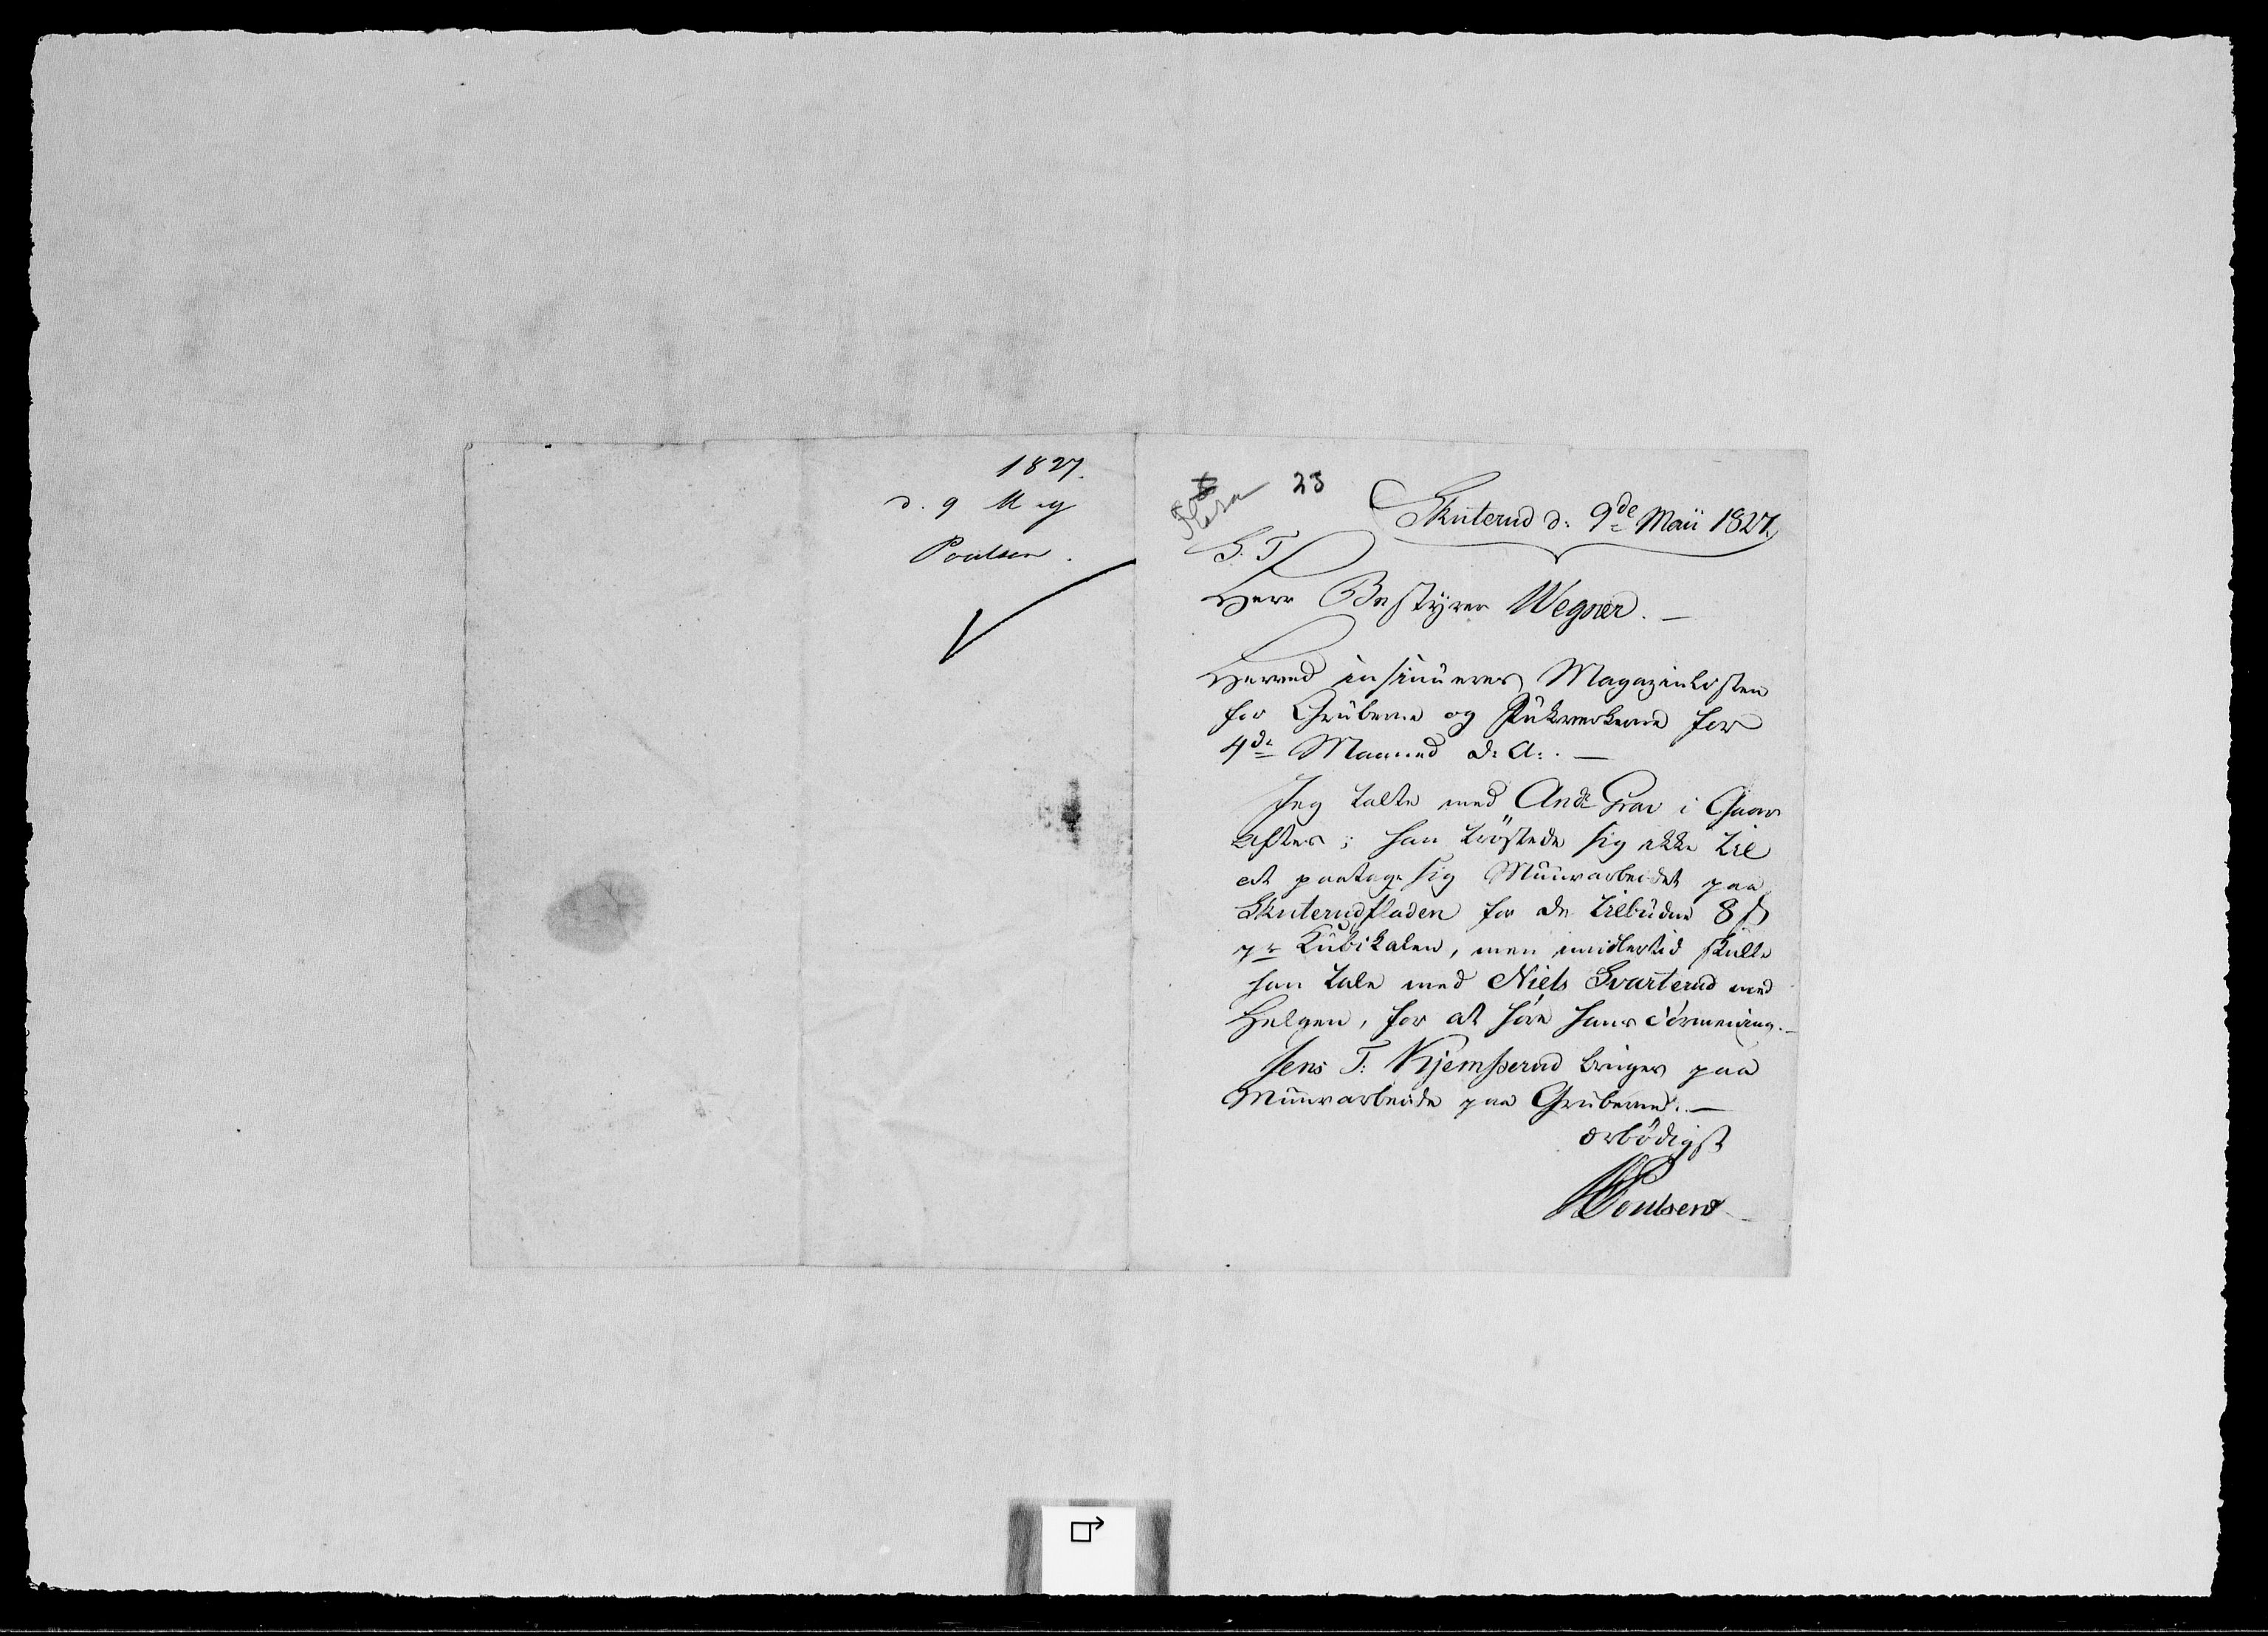 1827.
d. 9 May
Poulsen.
23
Skuterud d: 9de Maii 1827.
S. T.
Herr Bestyrer Wegner. —
Herved insinueres Magazinlisten
for Gruberne og Pukværkerne for
4de Maaned d: A: . —
Jeg talte med Ands Grav i Gaar
Aftes; han tröstede sig ikke til
at paatage sig Muurarbeidet paa
Skuterudfladen for de tilbudne 8 ß
pr Kubikalen, men imidlertid skulle
han tale med Niels Svarterud med
Helgen, for at høre hans Formening. —
Jens T: Kjempserud bruges paa
Muurarbeide paa Gruberne. —
ærbödigst
Poulsen